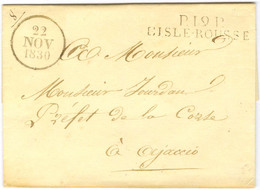 P.19.P.
L'ISLE-ROUSSE
22
NOV
1830
A Monsieur
Monsieur Jourdan
Préfet de la Corse
à Ajaccio